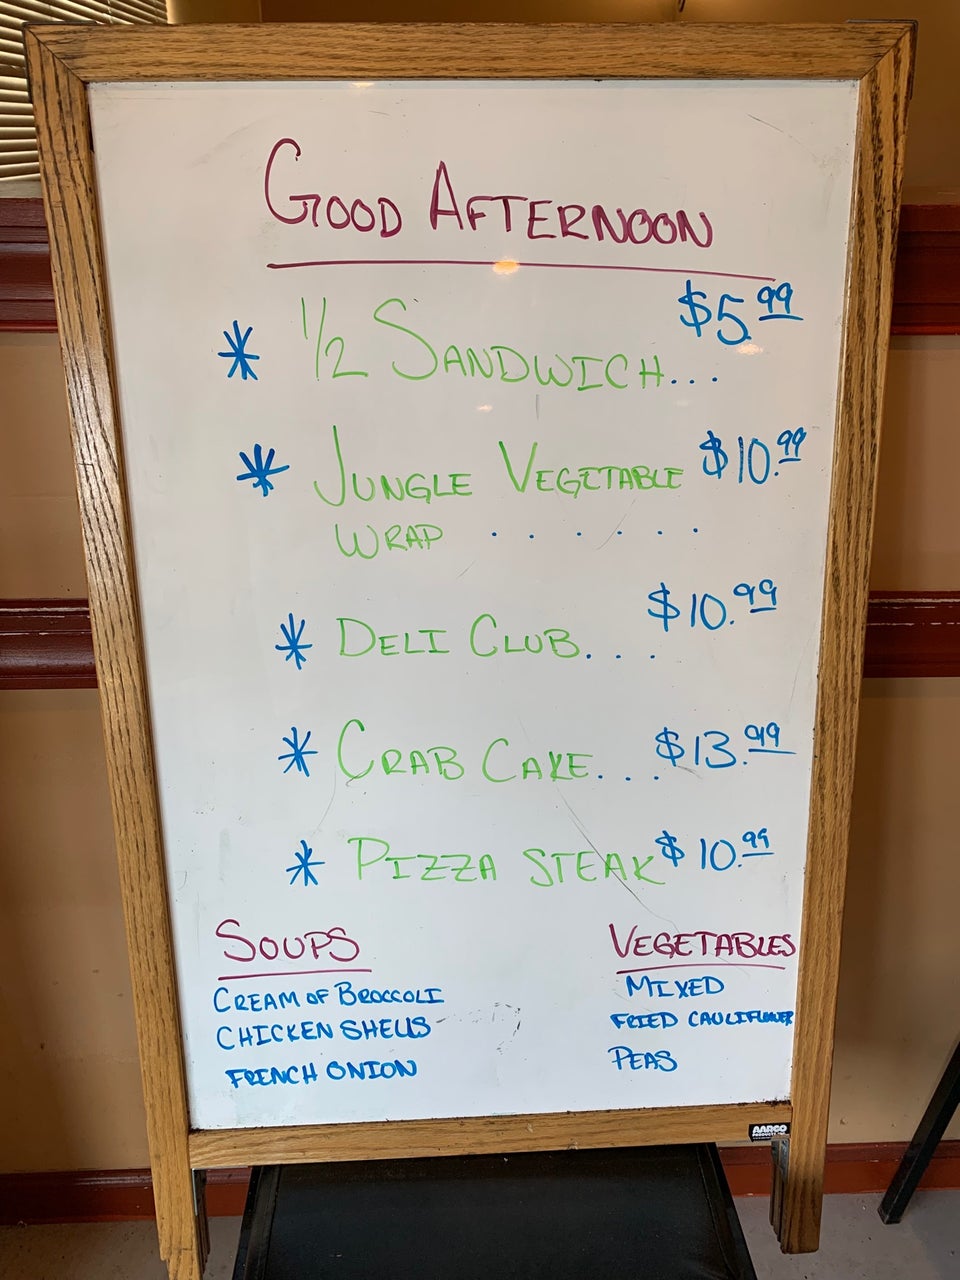 GOOD AFTERNOON
* 1/2 SANDWICH... $5.99
* JUNGLE VEGETABLE $10.99
WRAP . . . . . .
* DELI CLUB. . . $10.99
* CRAB CAKE. . . $13.99
* PIZZA STEAK $10.99
SOUPS
CREAM OF BROCCOLI
CHICKEN SHELLS
FRENCH ONION
VEGETABLES
MIXED
FRIED CAULIFLOWER
PEAS
AARCO
PRODUCTS